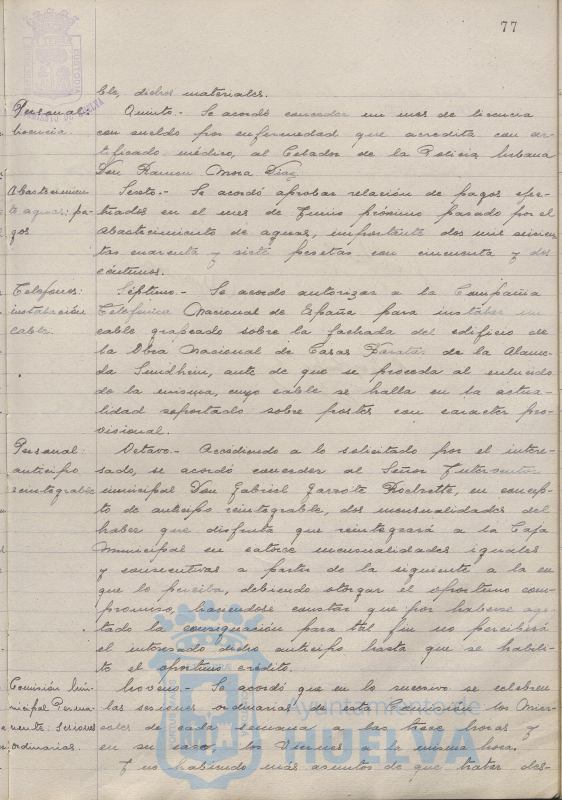 77
ble, dichos materiales.
Personal: licencia.
Quinto.- Se acordó conceder un mes de licencia
con sueldo por enfermedad que acredita con cer-
tificado médico, al Celador de la Policía Urbana
Don Ramon Mora Diaz.
Abastecimien-
to aguas: pa-
gos
Sexto.- Se acordó aprobar relación de pagos efec-
tuados en el mes de Junio próximo pasado por el
abastecimiento de aguas, importante dos mil seiscien-
tas cuarenta y siete pesetas con cincuenta y dos
céntimos.
Telefonos:
instalación
cable.
Séptimo.- Se acordo autorizar a la Compañia
Telefónica Nacional de España para instalar un
cable grapeado sobre la fachada del edificio de
la Obra Nacional de Casas Baratas de la Alame-
da Sundhein, ante de que se proceda al enlucido
de la misma, cuyo cable se halla en la actua-
lidad soportado sobre postes con caracter pro-
visional.
Personal:
anticipo
reintegrable
Octavo.- Accediendo a lo solicitado por el intere-
sado, se acordó conceder al Señor Interventor
municipal Don Gabriel Garrote, en concep-
to de anticipo reintegrable, dos mensualidades del
haber que disfruta que reintegrará a la Caja
Municipal en catorce mensualidades iguales
y consecutivas a partir de la siguiente a la en
que lo perciba, debiendo otorgar el oportuno com-
promiso, haciendose constar que por haberse ago-
tado la consignación para tal fin no percibirá
el interesado dicho anticipo hasta que se habili-
te el oportuno crédito.
Comisión Mu-
nicipal Perma-
nente: sesiones
ordinarias.
Noveno.- Se acordó que en lo sucesivo se celebren
las sesiones ordinarias de esta Comisión los Miér-
coles de cada semana a las trece horas y
en su caso, los Viernes a la misma hora.
Y no habiendo más asuntos de que tratar des-
Ayuntamiento de
HUELVA